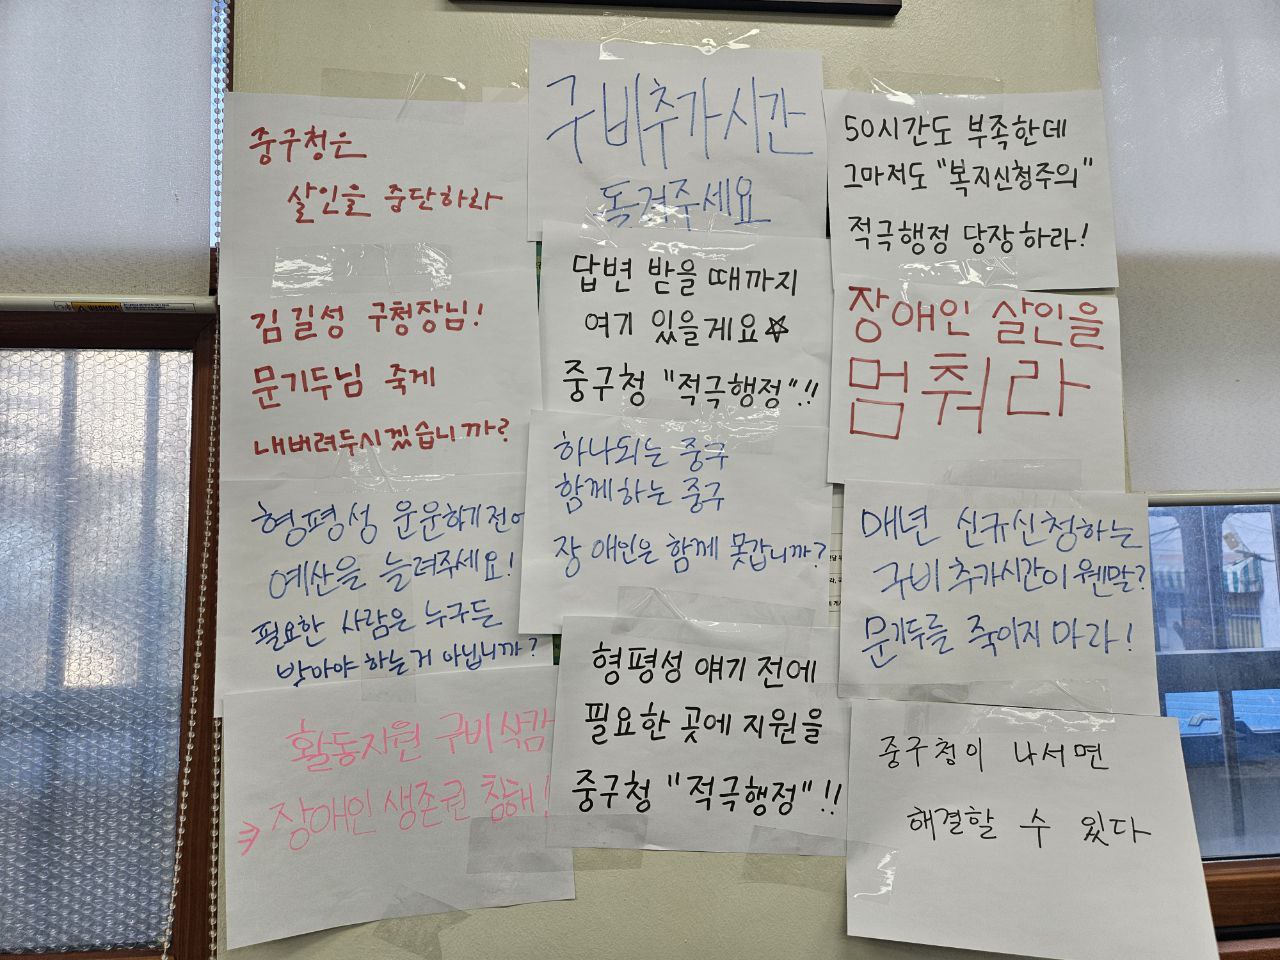 중구청은
살인을 중단하라
김길성 구청장님!
문기두님 죽게
내버려두시겠습니까?
형평성 운운하기 전에
예산을 늘려주세요!
필요한 사람은 누구든
받아야 하는거 아닙니까?
활동지원 구비삭감
→ 장애인 생존권 침해!
구비추가시간
돌려주세요
답변 받을 때까지
여기 있을게요☆
중구청 "적극행정"!!
하나되는 중구
함께하는 중구
장애인은 함께 못갑니까?
형평성 얘기 전에
필요한 곳에 지원을
중구청 "적극행정"!!
50시간도 부족한데
그마저도 "복지신청주의"
적극행정 당장하라!
장애인 살인을
멈춰라
매년 신규신청하는
구비 추가시간이 웬말?
문기두를 죽이지 마라!
중구청이 나서면
해결할 수 있다
WARNING